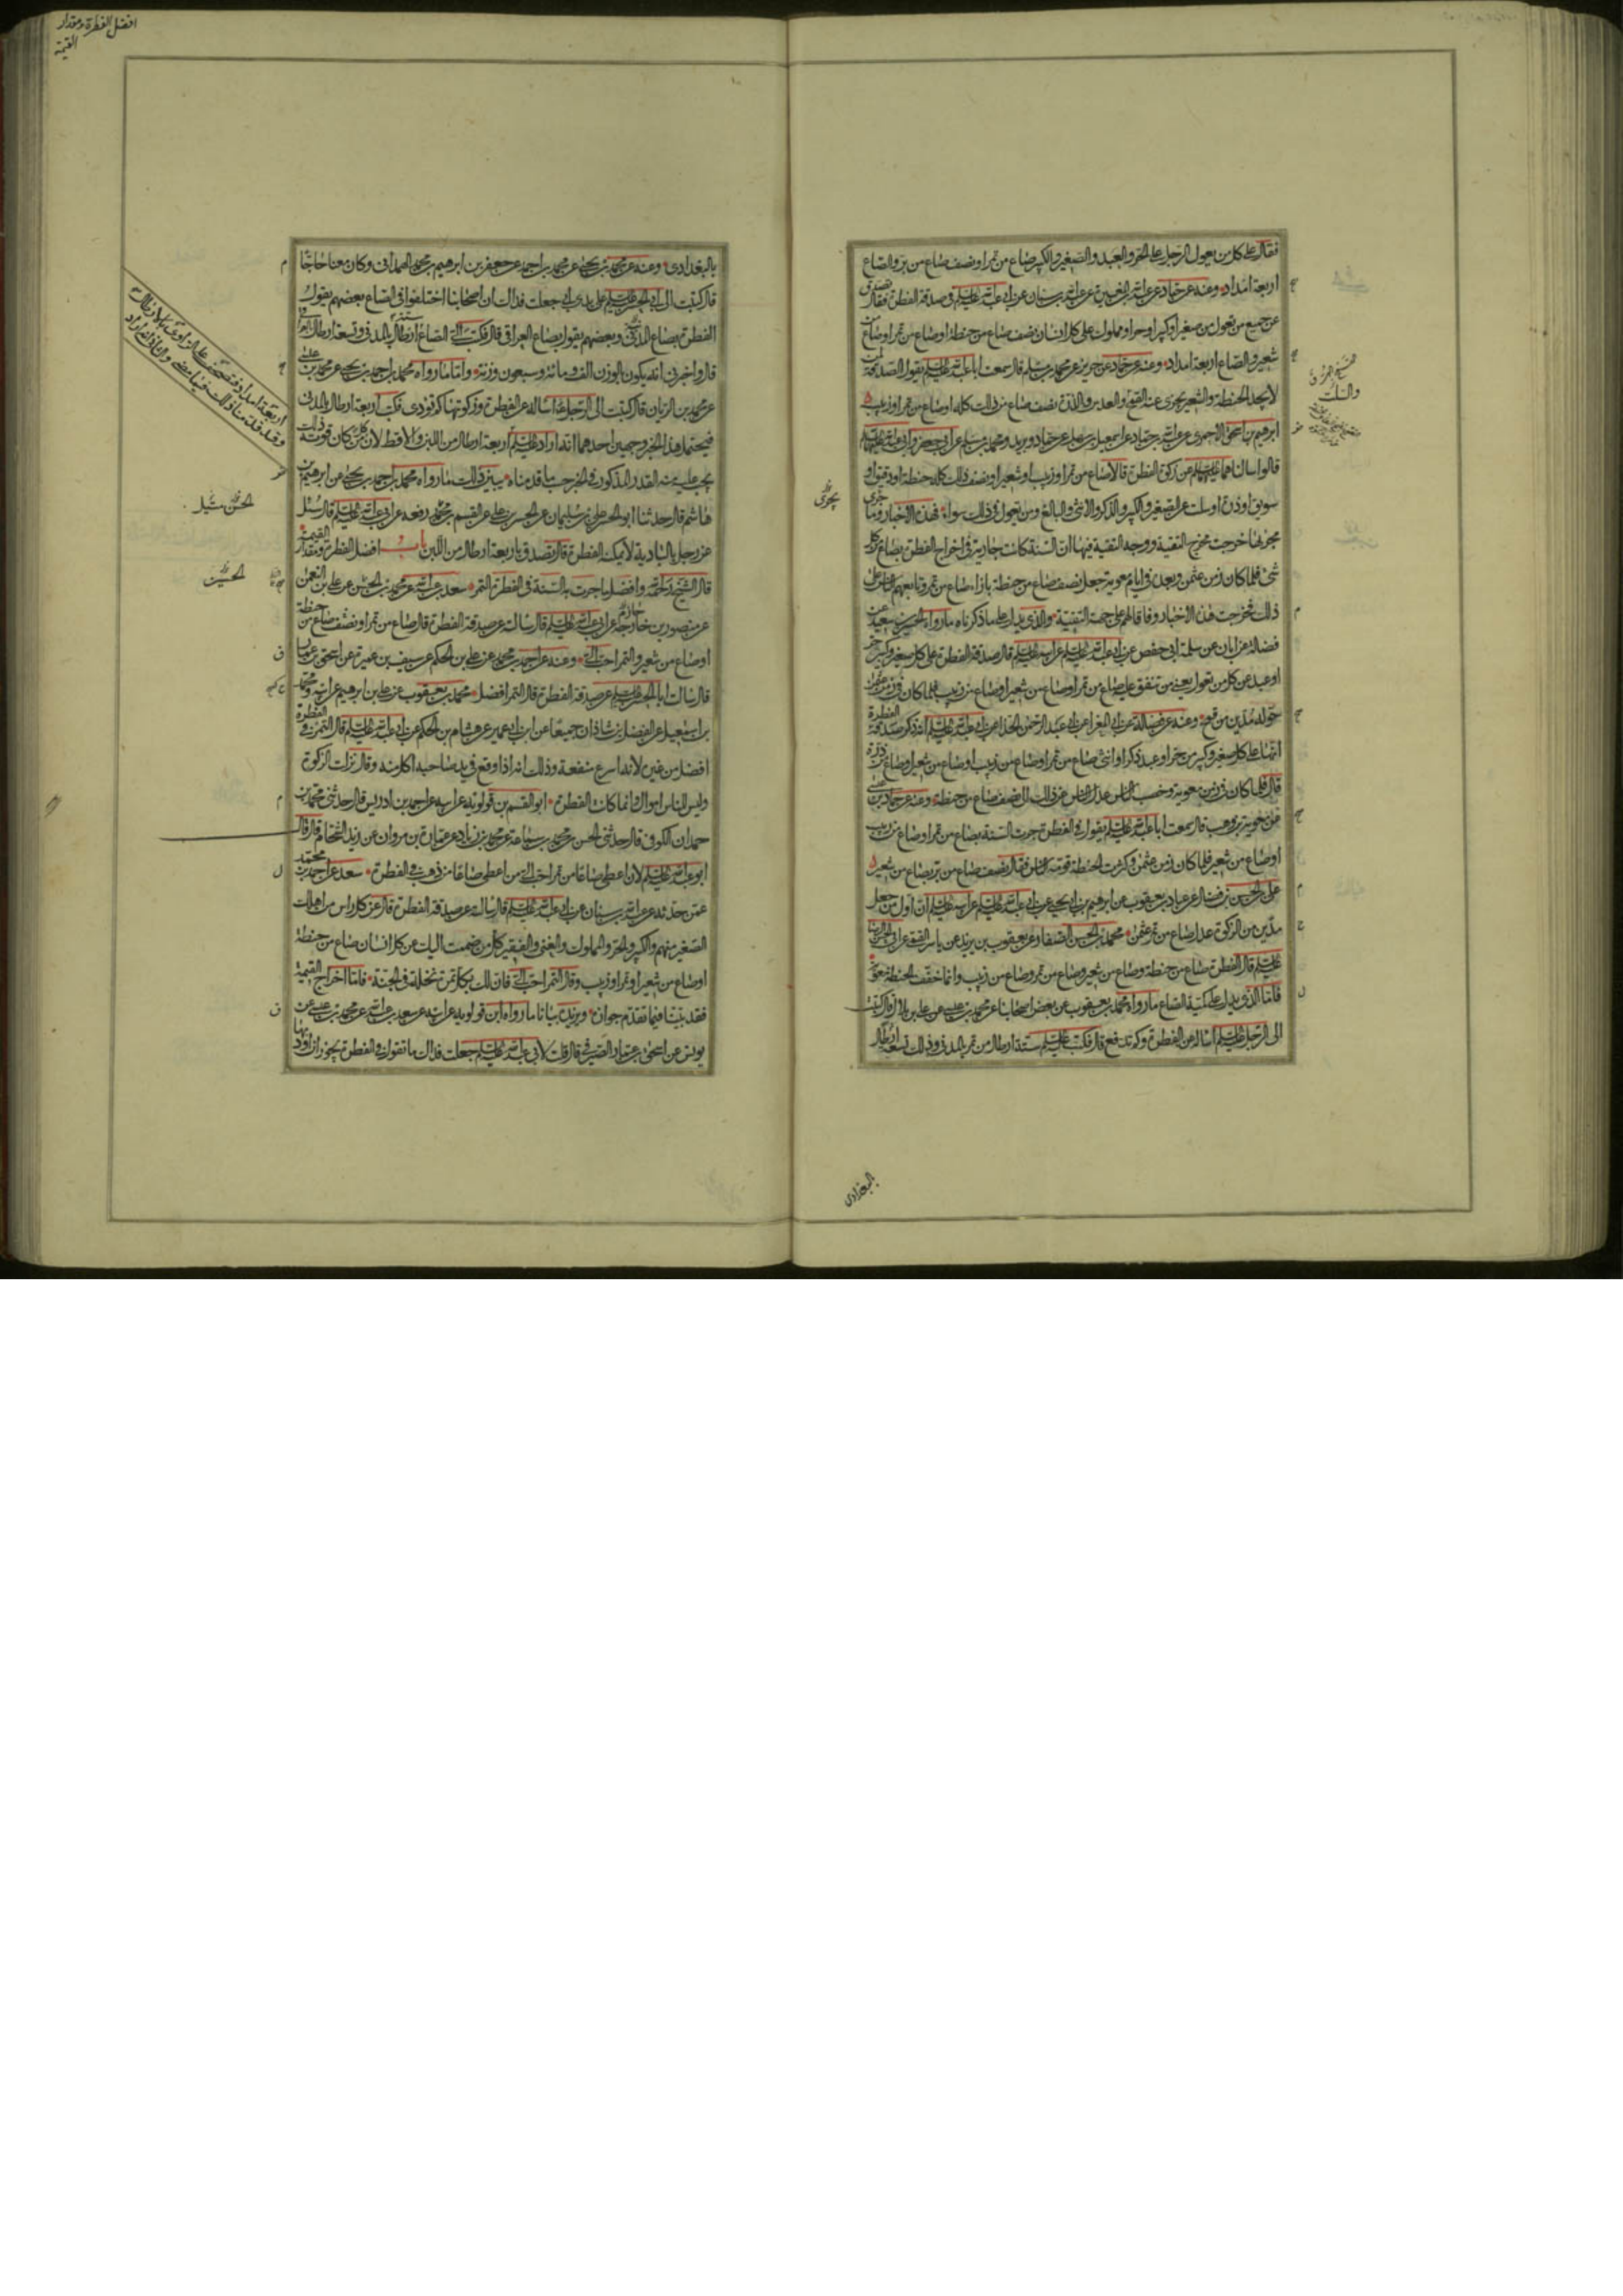 فقال على كل من يعول الرجل على الحر والعبد والصغير والكبير صاع من تمر او نصف صاع من بر والصاع
اربعة امداد وعنه عن حماد عن عبد الله بن المغيرة عن عبد الله بن سنان عن ابي عبد الله عليه السلم في صدقة الفطرة فقال تصدق
عن جميع من تعول من صغير او كبير او حر او مملوك على كل انسان نصف صاع من حنطة او صاع من تمر او صاع من
شعير والصاع اربعة امداد وعنه عن حماد عن حريز عن محمد بن مسلم قال سمعت ابا عبد الله عليه السلم يقول الصدقة لمن
لا يجد الحنطة والشعير يجزى عنه القمح والعدس والذرة نصف صاع من ذلك كله او صاع من تمر او زبيب
ابرهيم بن اسحق الاحمرى عن عبد الله بن حماد عن اسمعيل بن سهل عن حماد وبريد ومحمد بن مسلم عن ابي جعفر وابي عبد الله عليهما السلم
قالوا سالناهما عليهما السلم عن زكوة الفطرة قالا صاع من تمر او زبيب او شعير او نصف ذلك كله حنطة او دقيق او
سويق او ذرة او سلت عن الصغير والكبير والذكر والانثى والبالغ ومن تعول في ذلك سواء فهذه الاخبار وما جرى
مجراها خرجت مخرج التقية ووجه التقية فيها ان السنة كانت جارية في اخراج الفطرة بصاع من كل
شئ فلما كان زمن عثمن وبعده في ايام معوية جعل نصف صاع من حنطة بازاء صاع من تمر وتابعهم الناس على
ذلك فخرجت هذه الاخبار وفاقا لهم على جهة التقية والذي يدل على ما ذكرناه ما رواه الحسين بن سعيد عن
فضالة عن ابان عن سلمة ابي حفص عن ابي عبد الله عليه السلم عن ابيه عليه السلم قال صدقة الفطرة على كل صغير وكبير حر
او عبد عن كل من تعول يعنى من تنفق عليه صاع من تمر او صاع من شعير او صاع من زبيب فلما كان في زمن عثمان
حوله مدين من قمح وعنه عن فضالة عن ابي المغرا عن ابي عبد الرحمن الحذا عن ابي عبد الله عليه السلم انه ذكر صدقة الفطرة
انها على كل صغير وكبير من حر او عبد ذكر او انثى صاع من تمر او صاع من زبيب او صاع من شعير او صاع من ذرة
قال فلما كان في زمن معوية وخصب الناس عدل الناس عن ذلك الى نصف صاع من حنطة وعنه عن حماد بن عيسى
عن معوية بن وهب قال سمعت ابا عبد الله عليه السلم يقول في الفطرة جرت السنة بصاع من تمر او صاع من زبيب
او صاع من شعير فلما كان زمن عثمن وكثرت الحنطة قومه الناس فقال نصف صاع من بر بصاع من شعير
على بن الحسن بن فضال عن عباد بن يعقوب عن ابرهيم بن ابي يحيى عن ابي عبد الله عليه السلم عن ابيه عليه السلم ان اول من جعل
مدين من الزكوة عدل صاع من تمر عثمن محمد بن الحسن الصفار عن يعقوب بن يزيد عن ياسر القمى عن ابي الحسن الرضا
عليه السلم قال الفطرة صاع من حنطة وصاع من شعير وصاع من تمر وصاع من زبيب وانما خفف الحنطة معوية
فاما الذي يدل على كمية الصاع ما رواه محمد بن يعقوب عن بعض اصحابنا عن محمد بن عيسى عن على بن بلال قال كتبت
الى الرجل عليه السلم اساله عن الفطرة وكم تدفع قال فكتب عليه السلم ستة ارطال من تمر بالمدني وذلك تسعة ارطال
والسلت
يجزى
البغدادى
افضل الفطرة ومقدار
القيمة
بالبغدادى وعنه عن محمد بن يحيى عن محمد بن احمد عن جعفر بن ابرهيم بن محمد الهمدانى وكان معنا حاجا
قال كتبت الى ابي الحسن عليه السلم على يدى ابي جعلت فداك ان اصحابنا اختلفوا في الصاع بعضهم يقول
الفطرة بصاع المدني وبعضهم يقول بصاع العراقى قال فكتب الى الصاع ستة ارطال بالمدنى وتسعة ارطال بالعراقى
قال واخبرنى انه يكون بالوزن الف ومائة وسبعون وزنة واما ما رواه محمد بن احمد بن يحيى عن محمد بن عيسى
عن محمد بن الريان قال كتبت الى الرجل اساله عن الفطرة وزكوتها كم تؤدى فكتب اربعة ارطال بالمدنى
فيحتمل هذا الخبر وجهين احدهما انه اراد عليه السلم اربعة ارطال من اللبن والاقط لان من كان قوته ذلك
يجب عليه منه القدر المذكور في الخبر حسب ما قدمناه يبين ذلك ما رواه محمد بن احمد بن يحيى عن ابرهيم بن
هاشم قال حدثنا ابو الحسن على بن سليمان عن الحسن بن على عن القسم بن محمد رفعه عن ابي عبد الله عليه السلم قال سئل
عن رجل بالبادية لا يمكنه الفطرة قال تصدق باربعة ارطال من اللبن باب افضل الفطرة ومقدار القيمة
قال الشيخ رحمه الله وافضل ما جرت به السنة في الفطرة التمر سعد بن عبد الله عن محمد بن الحسين عن على بن النعمن
عن منصور بن خارجة عن ابي عبد الله عليه السلم قال سالته عن صدقة الفطرة قال صاع من تمر او نصف صاع من حنطة
او صاع من شعير والتمر احب الى وعنه عن احمد بن محمد عن على بن الحكم عن سيف بن عميرة عن اسحق بن عمار
قال سالت ابا الحسن عليه السلم عن صدقة الفطرة قال التمر افضل محمد بن يعقوب عن على بن ابرهيم عن ابيه ومحمد
بن اسمعيل عن الفضل بن شاذان جميعا عن ابن ابي عمير عن هشام بن الحكم عن ابي عبد الله عليه السلم قال التمر في الفطرة
افضل من غيره لانه اسرع منفعة وذلك انه اذا وقع في يد صاحبه اكل منه وقال نزلت الزكوة
وليس للناس اموال وانما كانت الفطرة ابو القسم بن قولويه عن ابيه عن احمد بن ادريس قال حدثنى محمد بن
حمدان الكوفى قال حدثنى الحسن بن محمد بن سماعة عن محمد بن زياد عن عثمان بن مروان عن زيد الشحام قال قال
ابو عبد الله عليه السلم لان اعطى صاعا من تمر احب الى من اعطى صاعا من ذهب في الفطرة سعد عن احمد بن محمد
عمن حدثه عن عبد الله بن سنان عن ابي عبد الله عليه السلم قال سالته عن صدقة الفطرة قال عن كل راس من اهلك
الصغير منهم والكبير والحر والمملوك والغنى والفقير كل من ضممت اليك عن كل انسان صاع من حنطة
او صاع من شعير او تمر او زبيب وقال التمر احب الى فان لك بكل تمرة نخلة في الجنة فاما اخراج القيمة
فقد بينا فيما تقدم جوازه ويزيده بيانا ما رواه ابن قولويه عن ابيه عن سعد بن عبد الله عن محمد بن عيسى عن
يونس عن اسحق بن عمار الصيرفى قال قلت لابي عبد الله عليه السلم جعلت فداك ما تقول في الفطرة يجوز ان اؤديها
اربعة امداد فتصحف على الراوى بالارطال
وقد قدمنا ذلك فيما مضى والثانى انه اراد
الحسين